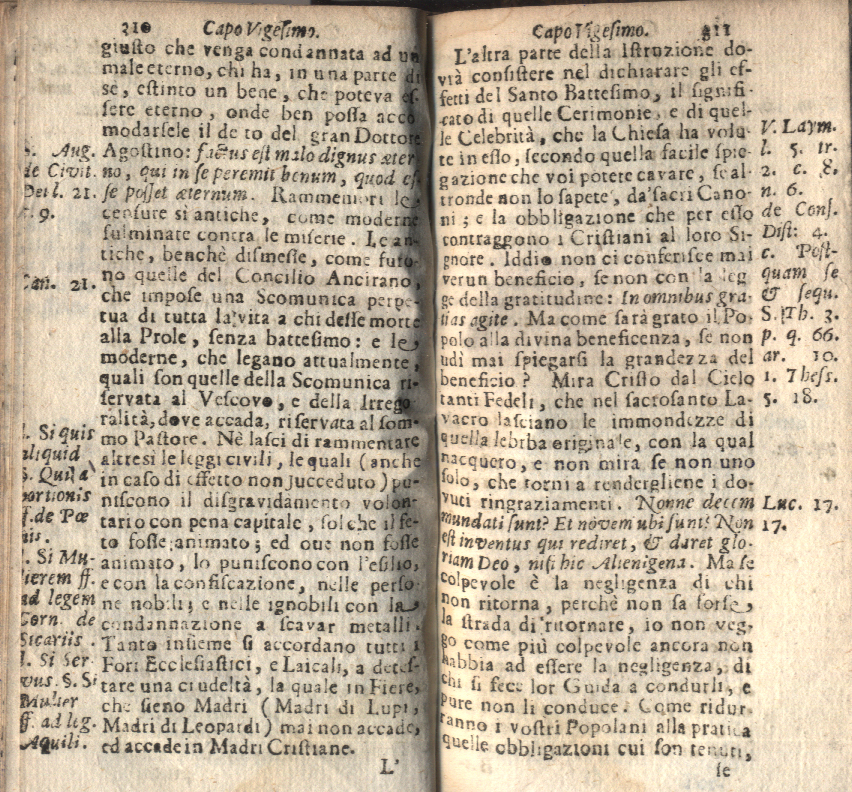 210 Capo Vigesimo.
giusto che venga condannata ad un
male eterno, chi ha, in una parte di
se, estinto un bene, che poteva es-
sere eterno, onde ben possa acco
modarsele il detto del gran Dottore
S. Aug. Agostino: factus est malo dignus æter
de Civit. no, qui in se peremit bonum, quod es
Dei l. 21. se posset æternum. Rammemori le
c. 9. censure si antiche, come moderne
fulminate contra le miserie. Le an-
tiche, benchè dismesse, come furo-
no quelle del Concilio Ancirano,
Can. 21. che impose una Scomunica perpe-
tua di tutta la vita a chi desse morte
alla Prole, senza battesimo: e le
moderne, che legano attualmente,
quali son quelle della Scomunica ri-
servata al Vescovo, e della Irrego
ralità, dove accada, riservata al som-
l. Si quis mo Pastore. Nè lasci di rammentare
aliquid altresi le leggi civili, le quali (anche
§. Qui a in caso di effetto non succeduto) pu-
bortionis niscono il disgravidamento volon-
ff. de Pœ tario con pena capitale, sol che il fe-
nis. to fosse animato; ed ove non fosse
l. Si Mu- animato, lo puniscono con l'esilio,
lierem ff. e con la confiscazione, nelle perso-
ad legem ne nobili; e nelle ignobili con la
Corn. de condannazione a scavar metalli.
Sicariis. Tanto insieme si accordano tutti i
l. Si Ser Fori Ecclesiastici, e Laicali, a detes-
vus. §. Si tare una crudeltà, la quale in Fiere,
Mulier che sieno Madri (Madri di Lupi,
ff. ad leg. Madri di Leopardi) mai non accade,
Aquili. ed accade in Madri Cristiane.
L'
Capo Vigesimo. 211
L'altra parte della Istruzione do-
vrà consistere nel dichiarare gli ef-
fetti del Santo Battesimo, il signifi-
cato di quelle Cerimonie, e di quel-
le Celebrità, che la Chiesa ha volu- V. Laym.
te in esso, secondo quella facile spie- l. 5. tr.
gazione che voi potete cavare, se al- 2. c. 8.
tronde non lo sapete, da' sacri Cano- n. 6.
ni; e la obbligazione che per esso de Cons.
contraggono i Cristiani al loro Si- Dist: 4.
gnore. Iddio non ci conferisce mai c. Post-
verun beneficio, se non con la leg quam se
ge della gratitudine: In omnibus gra- & sequ.
tias agite. Ma come sarà grato il Po- S. Th. 3.
polo alla divina beneficenza, se non p. q. 66.
udì mai spiegarsi la grandezza del ar. 10.
beneficio? Mira Cristo dal Cielo 1. Thess.
tanti Fedeli, che nel sacrosanto La- 5. 18.
vacro lasciano le immondezze di
quella lebbra originale, con la qual
nacquero, e non mira se non uno
solo, che torni a rendergliene i do-
vuti ringraziamenti. Nonne decem Luc. 17.
mundati sunt? Et novem ubi sunt? Non 17.
est inventus qui rediret, & daret glo-
riam Deo, nisi hic Alienigena. Ma se
colpevole è la negligenza di chi
non ritorna, perchè non sa forse,
la strada di ritornare, io non veg-
go come più colpevole ancora non
habbia ad essere la negligenza, di
chi si fece lor Guida a condurli, e
pure non li conduce. Come ridur-
ranno i vostri Popolani alla pratica
quelle obbligazioni cui son tenuti,
se